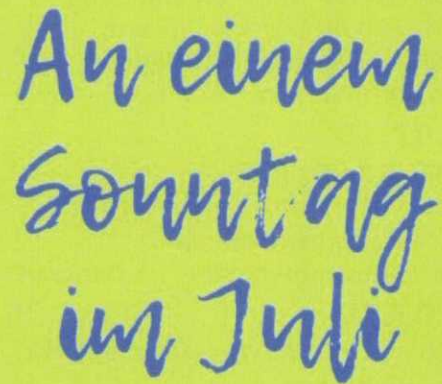 An einem
Sonntag
im Juli